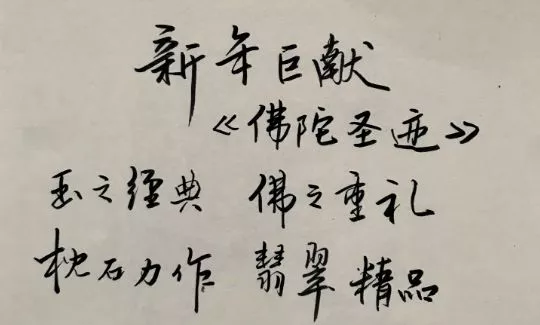 新年巨献
《佛陀圣迹》
玉之经典 佛之重礼
枕石力作 翡翠精品